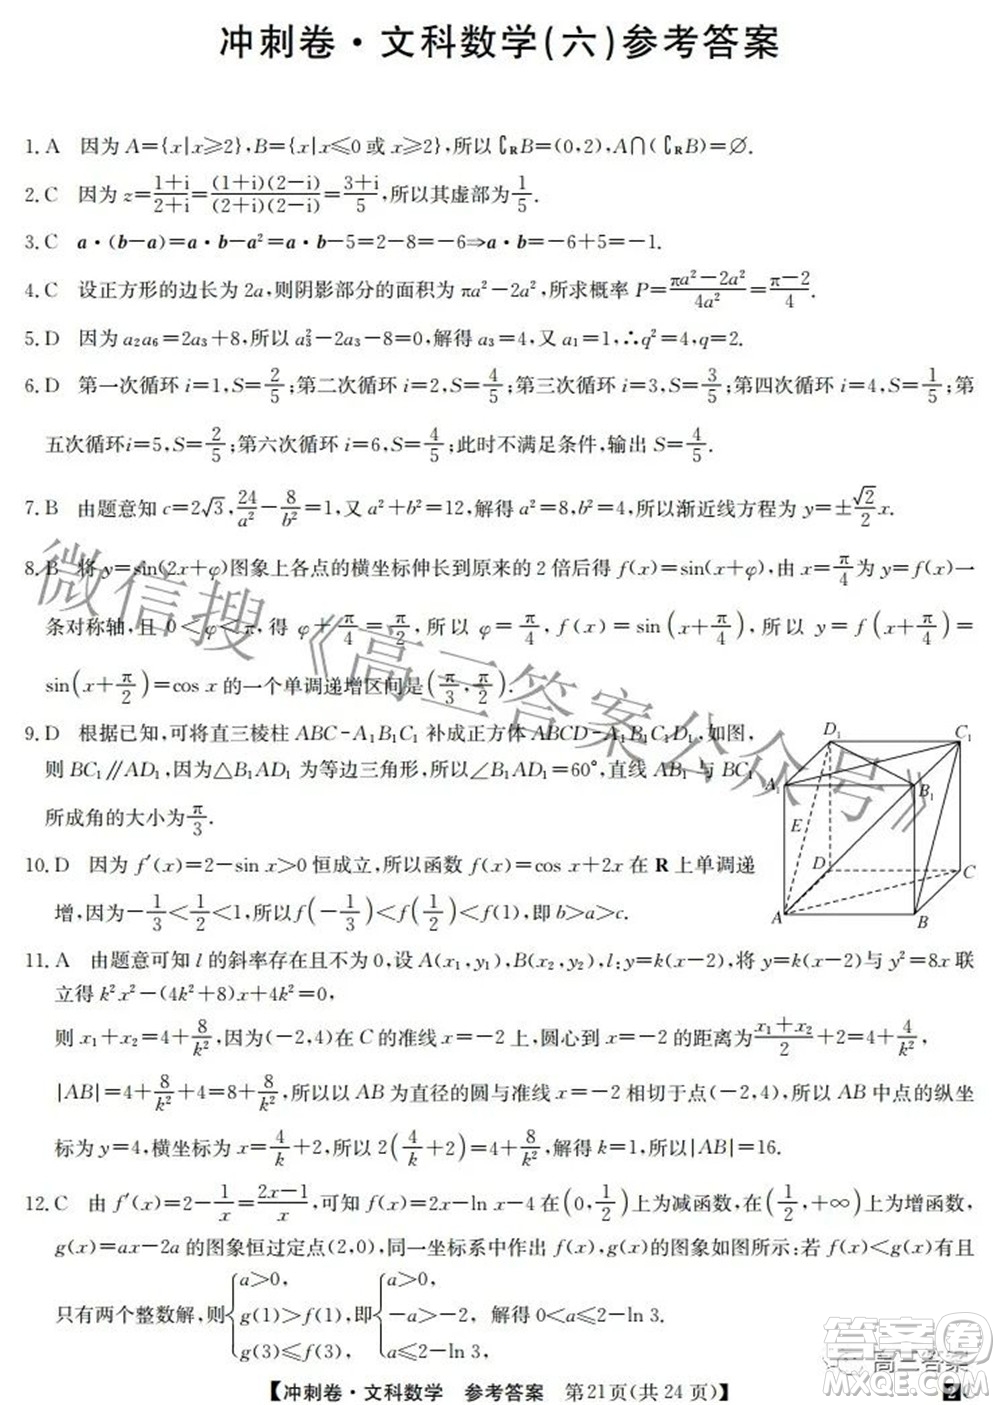 冲刺卷·文科数学(六)参考答案
1. A 因为 A={x|x⩾2},B={x|x⩽0 或 x⩾2},所以 ∁RB=(0,2),A∩(∁RB)=∅.
2. C 因为 z=(1+i)/(2+i)=(1+i)(2-i)/(2+i)(2-i)=(3+i)/5,所以其虚部为 1/5.
3. C a·(b-a)=a·b-a²=a·b-5=2-8=-6⇒a·b=-6+5=-1.
4. C 设正方形的边长为 2a,则阴影部分的面积为 πa²-2a²,所求概率 P=(πa²-2a²)/4a²=(π-2)/4.
5. D 因为 a₂a₆=2a₃+8,所以 a₃²-2a₃-8=0,解得 a₃=4,又 a₁=1,∴q²=4,q=2.
6. D 第一次循环 i=1,S=2/5;第二次循环 i=2,S=4/5;第三次循环 i=3,S=3/5;第四次循环 i=4,S=1/5;第
五次循环i=5,S=2/5;第六次循环 i=6,S=4/5;此时不满足条件,输出 S=4/5.
7. B 由题意知 c=2√3,24/a²-8/b²=1,又 a²+b²=12,解得 a²=8,b²=4,所以渐近线方程为 y=±(√2/2)x.
8. B 将 y=sin(2x+φ)图象上各点的横坐标伸长到原来的 2 倍后得 f(x)=sin(x+φ),由 x=π/4 为 y=f(x)一
条对称轴,且 0<φ<π,得 φ+π/4=π/2,所以 φ=π/4,f(x)=sin(x+π/4),所以 y=f(x+π/4)=
sin(x+π/2)=cos x 的一个单调递增区间是(π/3,π/2).
9. D 根据已知,可将直三棱柱 ABC-A₁B₁C₁ 补成正方体 ABCD-A₁B₁C₁D₁,如图,
则 BC₁∥AD₁,因为△B₁AD₁ 为等边三角形,所以∠B₁AD₁=60°,直线 AB₁ 与 BC₁
所成角的大小为 π/3.
D₁ C₁
A₁ B₁
E
D C
A B
10. D 因为 f′(x)=2-sin x>0 恒成立,所以函数 f(x)=cos x+2x 在 R 上单调递
增,因为-1/3<1/2<1,所以f(-1/3)<f(1/2)<f(1),即 b>a>c.
11. A 由题意可知 l 的斜率存在且不为 0,设 A(x₁,y₁),B(x₂,y₂),l:y=k(x-2),将 y=k(x-2)与 y²=8x 联
立得 k²x²-(4k²+8)x+4k²=0,
则 x₁+x₂=4+8/k²,因为(-2,4)在 C 的准线 x=-2 上,圆心到 x=-2 的距离为(x₁+x₂)/2+2=4+4/k²,
|AB|=4+8/k²+4=8+8/k²,所以以 AB 为直径的圆与准线 x=-2 相切于点(-2,4),所以 AB 中点的纵坐
标为 y=4,横坐标为 x=4/k+2,所以 2(4/k+2)=4+8/k²,解得 k=1,所以|AB|=16.
12. C 由 f′(x)=2-1/x=(2x-1)/x,可知 f(x)=2x-ln x-4 在(0,1/2)上为减函数,在(1/2,+∞)上为增函数,
g(x)=ax-2a 的图象恒过定点(2,0),同一坐标系中作出 f(x),g(x)的图象如图所示:若 f(x)<g(x)有且
只有两个整数解,则{a>0, g(1)>f(1), g(3)⩽f(3),即{a>0, -a>-2, a⩽2-ln 3, 解得 0<a⩽2-ln 3.
【冲刺卷·文科数学 参考答案 第21页(共 24 页)】
微信搜《高三答案公众号》
答案圈
高三答案